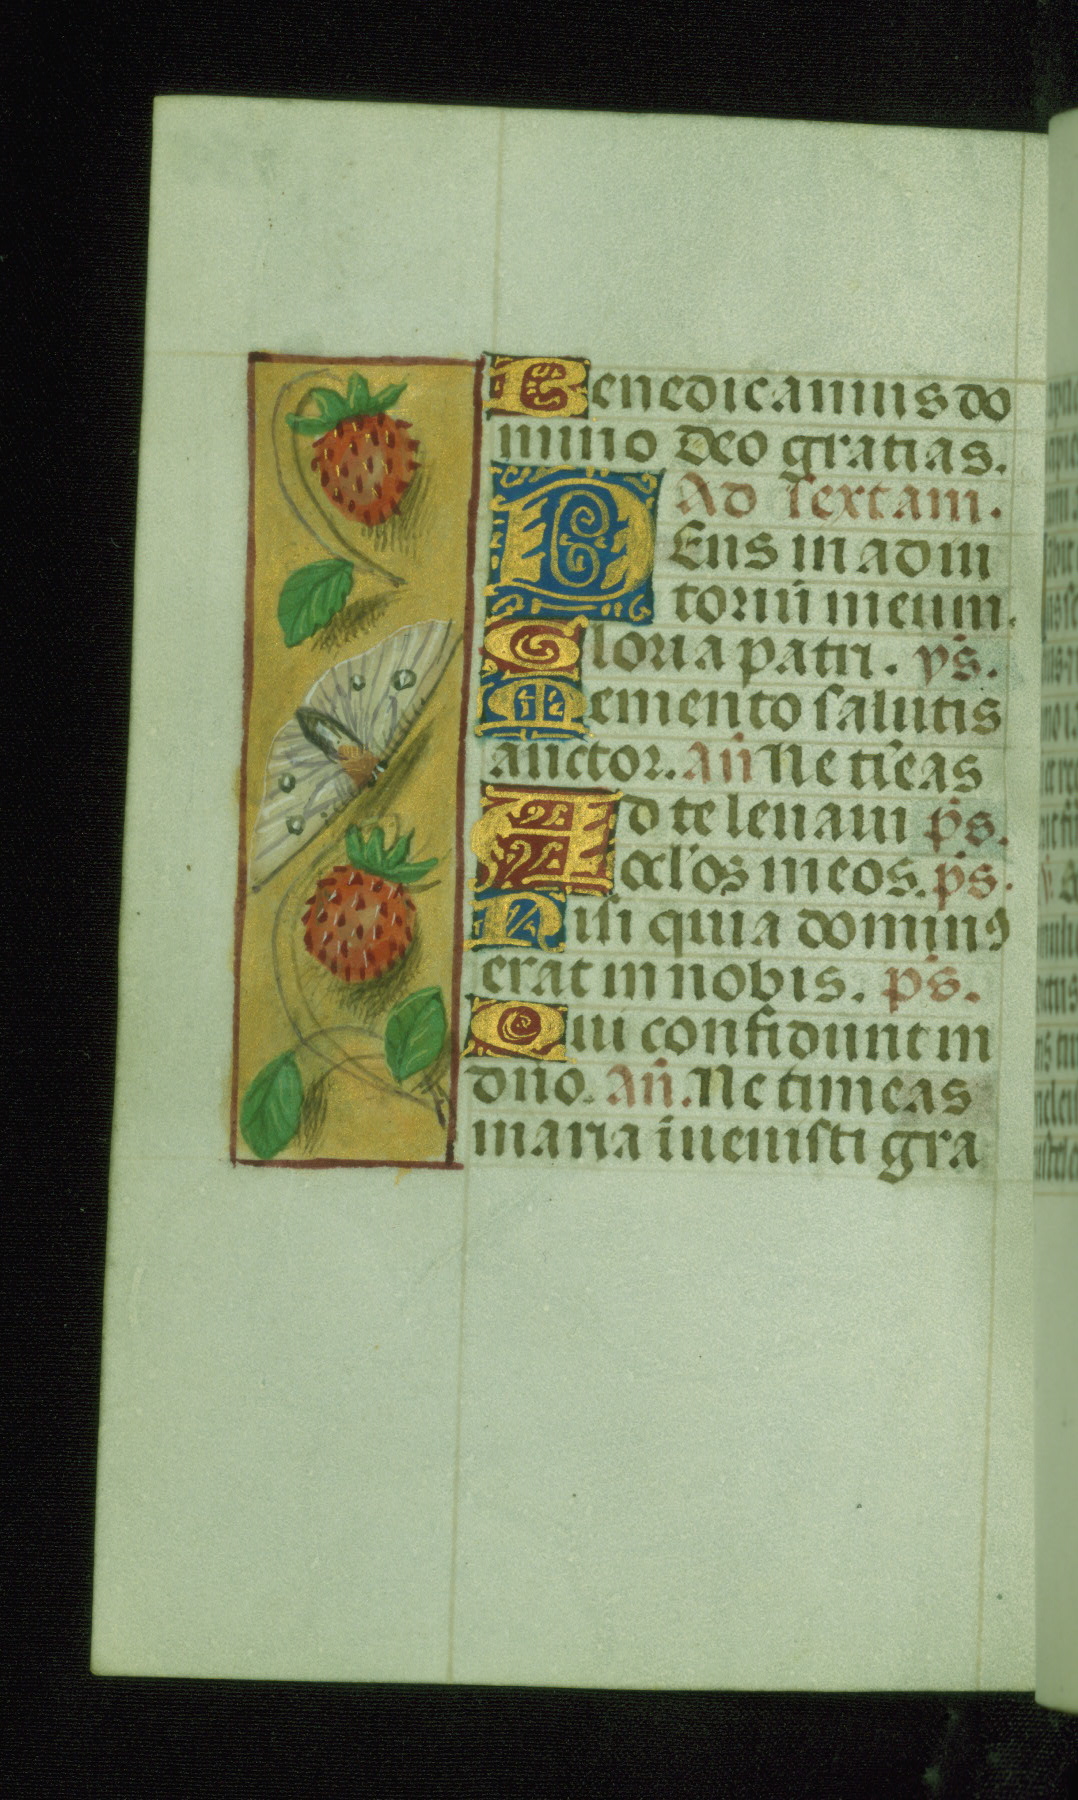 Benedicamus do
mino Deo gratias.
Ad sextam.
DEus in adiu
toriū meum.
Gloria patri. ys.
Memento salutis
auctor. Añ Ne tīeas
Ad te leuaui ps.
ocl'os meos. ps.
Nisi quia dominꝰ
erat in nobis. ps.
Qui confidunt in
dño. Añ. Ne timeas
maria īuenisti gra